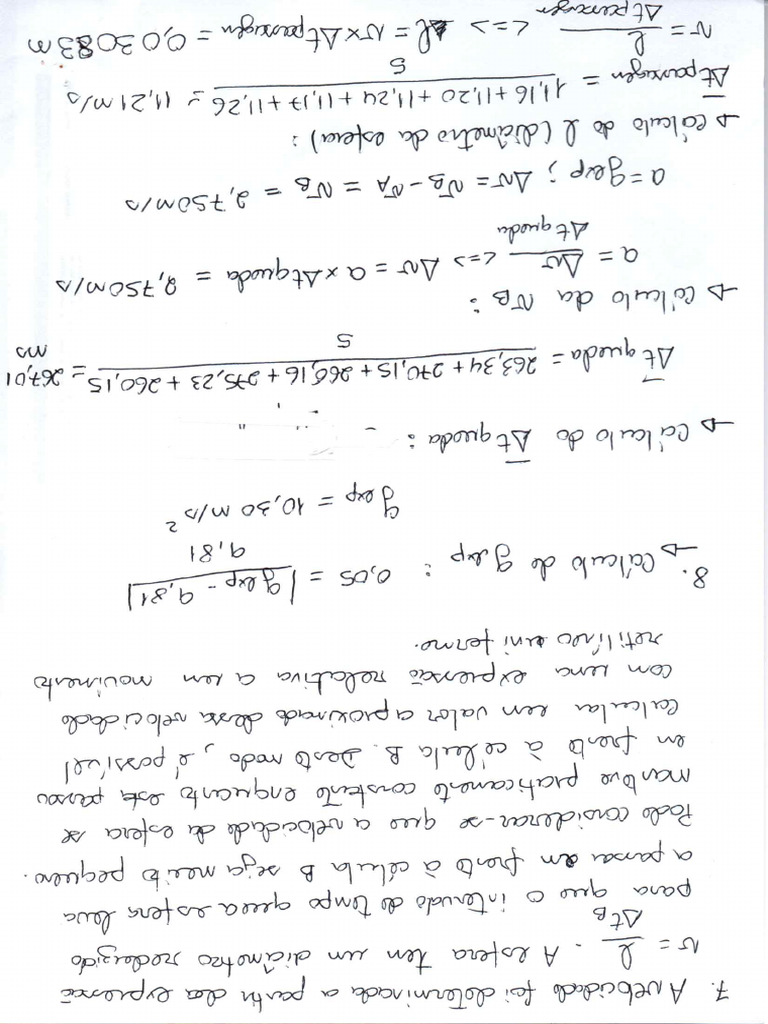 7. A velocidade foi determinada a partir da expressão
v = l / Δt_B . A esfera tem um diâmetro reduzido
para que o intervalo de tempo que a esfera leva
a passar em frente à célula B seja muito pequeno.
Pode considerar-se que a velocidade da esfera se
manteve praticamente constante enquanto esta passou
em frente à célula B. Deste modo, é possível
calcular um valor aproximado dessa velocidade
com uma expressão relativa a um movimento
retilíneo uniforme.
8. → Cálculo de g exp : 0,05 = |g exp - 9,81| / 9,81
g exp = 10,30 m/s²
→ Cálculo do Δt queda :
Δt queda = (263,34 + 270,15 + 266,16 + 275,23 + 260,15) / 5 = 267,01 ms
→ Cálculo da v_B :
a = Δv / Δt queda <=> Δv = a × Δt queda = 2,750 m/s
a = g exp ; Δv = v_B - v_A = v_B = 2,750 m/s
→ Cálculo do l (diâmetro da esfera) :
Δt passagem = (11,16 + 11,20 + 11,24 + 11,17 + 11,26) / 5 = 11,21 m/s
v = l / Δt passagem <=> l = v × Δt passagem = 0,03083 m